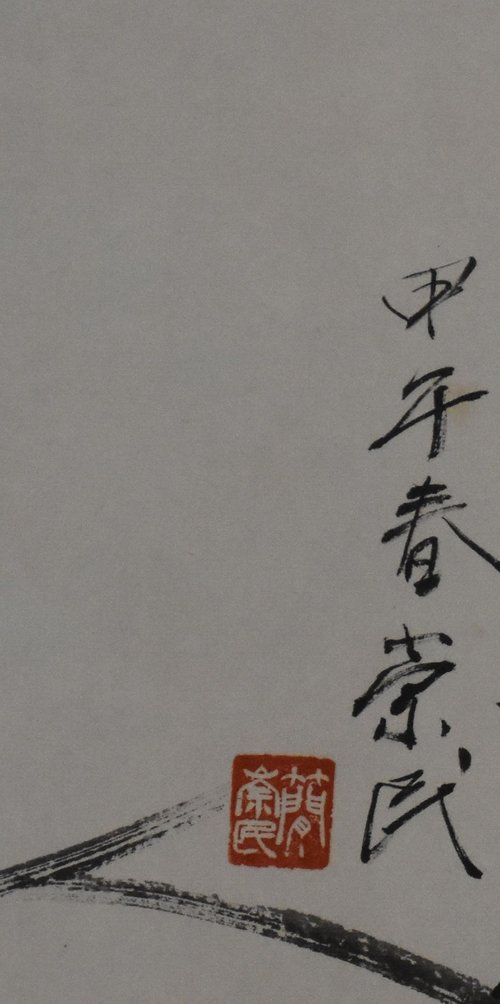 甲午春崇民
簡崇民